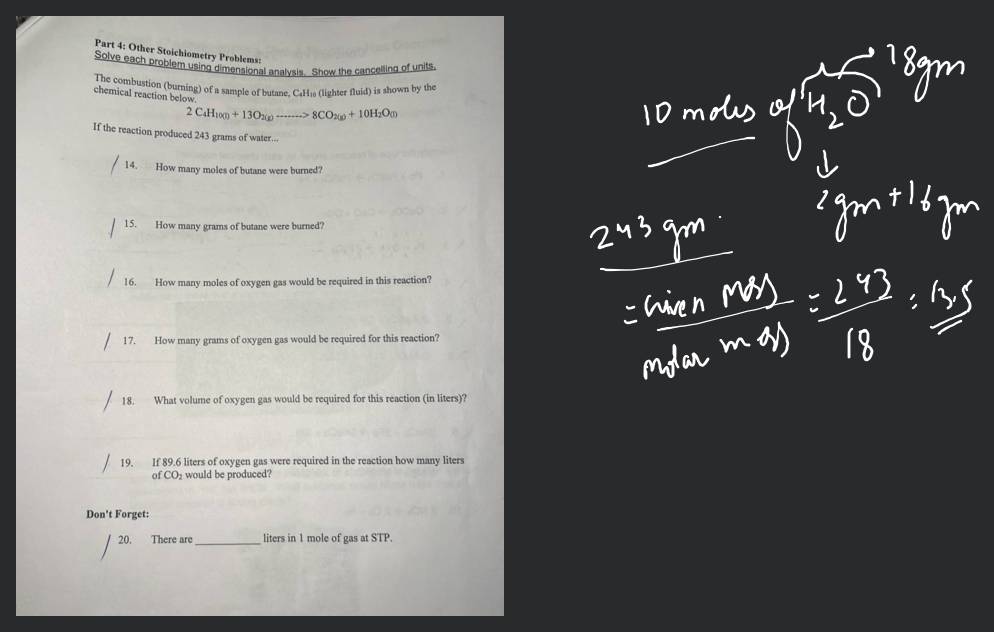 Part 4: Other Stoichiometry Problems:
Solve each problem using dimensional analysis. Show the cancelling of units.
The combustion (burning) of a sample of butane, C₄H₁₀ (lighter fluid) is shown by the
chemical reaction below.
2 C₄H₁₀₍ₗ₎ + 13O₂₍g₎ -------> 8CO₂₍g₎ + 10H₂O₍ₗ₎
If the reaction produced 243 grams of water...
14. How many moles of butane were burned?
15. How many grams of butane were burned?
16. How many moles of oxygen gas would be required in this reaction?
17. How many grams of oxygen gas would be required for this reaction?
18. What volume of oxygen gas would be required for this reaction (in liters)?
19. If 89.6 liters of oxygen gas were required in the reaction how many liters
of CO₂ would be produced?
Don't Forget:
20. There are __________ liters in 1 mole of gas at STP.
18gm
10 moles of H₂O
↓
2gm + 16gm
243 gm
= Given mass = 243 = 13.5
molar mass 18